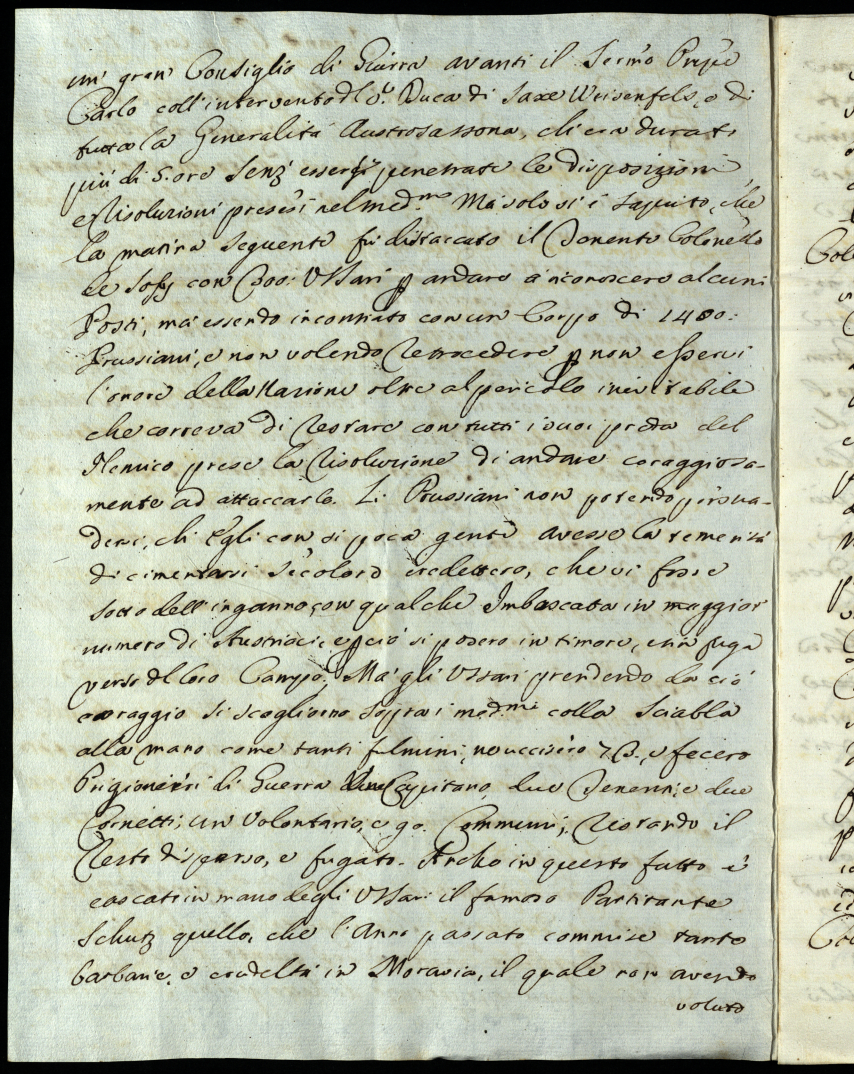 un' gran' Consiglio di Guerra avanti il Sermo Prnpe
Carlo coll' intervento dl Sr. Duca di Saxe Weisenfels, e di
tutta la Generalità Austrosassona, ch'era durato
più di 5. ore senz' essersi penetrate le disposizioni,
e risoluzioni presesi nel medmo Mà solo si è saputo, che
la matina seguente fù distaccato il Tenente Colonello
con 300: Ussari p andare à riconoscere alcuni
Posti, mà essendo incontrato con un Corpo di 1400:
Prussiani, e non volendo retrocedere p non esservi
l'onore della Nazione oltre al pericolo inevitabile
che correva di restare con tutti i suoi preda del
Nemico prese la risoluzione di andare coraggiosa-
mente ad attaccarlo. Li Prussiani non potendo persua-
dersi, ch' Egli con si poca gente avesse la temerità
di cimentarsi seco loro credettero, che vi fosse
sotto dell' inganno con qualche Imbascata in maggior
numero di Austriaci, e p ciò si posero in timore, e in fuga
verso dl loro Campo; Mà gli Ussari prendendo da ciò
coraggio si scogliorno sopra i medmi colla Sciabla
alla mano come tanti fulmini, ne uccisero 73., e fecero
Prigionieri di Guerra Capitano, due Tenenti, e due
Cornetti, un Volontario, e 90. Communi, restando il
resto disperso, e fugato. Anche in questo fatto è
cascato in mano degli Ussari il famoso Partitante
Schutz quello, che l'Anno passato commise tante
barbarie, e crudeltà in Moravia, il quale non avendo
voluto